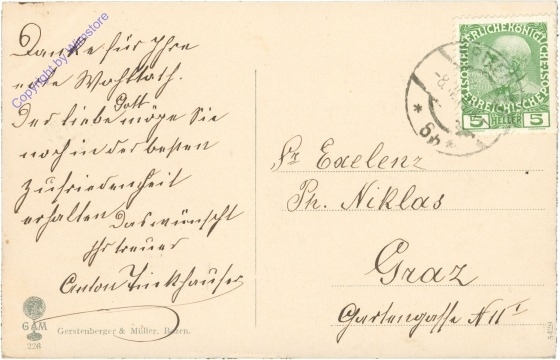 Danke für Ihre
werte Wohlthat.
Der liebe Gott möge Sie
noch in der besten
Zufriedenheit
erhalten Das wünscht
Ihr treuer
Anton Tinkhauser
Copyright by Winstore
KAISERLICHE KÖNIGLICHE
ÖSTERREICHISCHE POST
5 HELLER 5
Sr Exelenz
Ph. Niklas
Graz
Gartengasse N
GAM
226
Gerstenberger & Müller, Bozen.